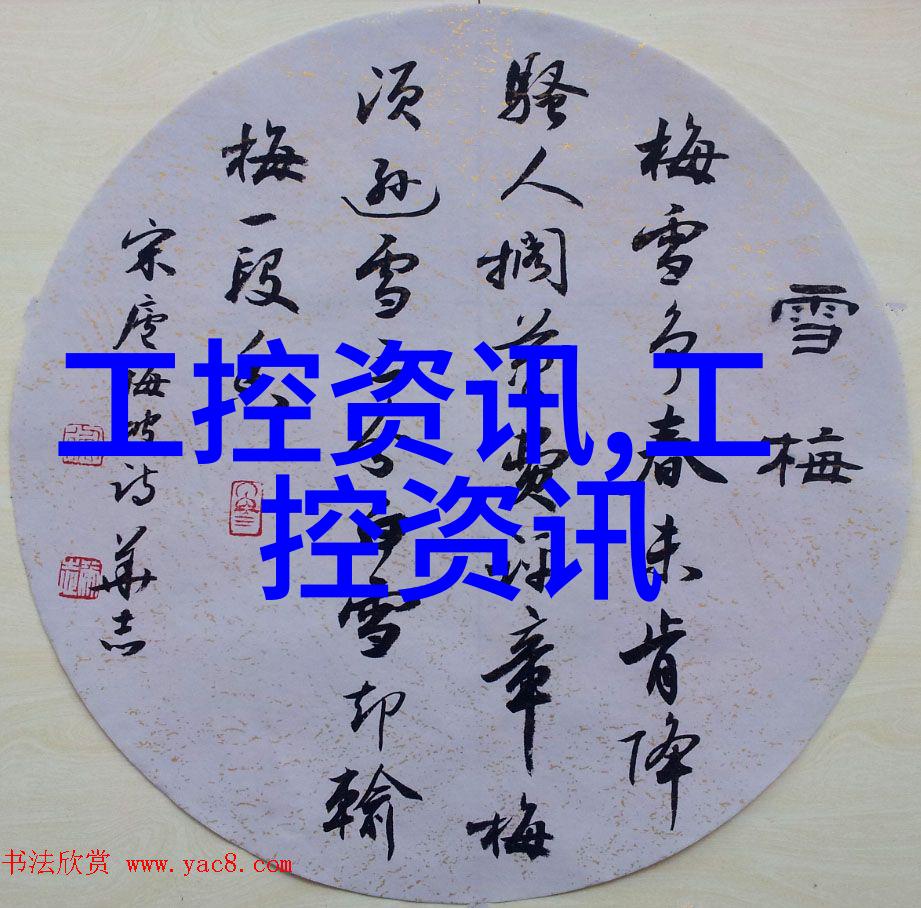 雪梅
梅雪争春未肯降
騷人搁笔费评章梅
须逊雪三分白雪却输
梅一段香
宋廬梅坡诗華志
工控资讯,工
控资讯
书法欣赏 www.yac8.com